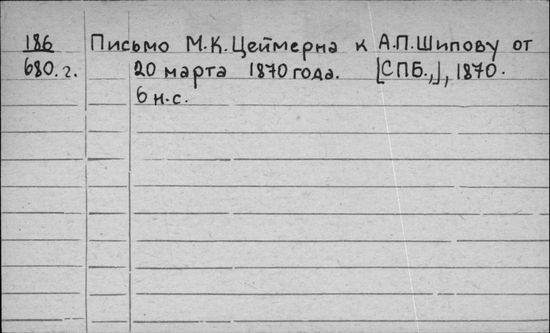 186 Письмо М.К.Цеймерна к А.П.Шипову от
680.г. 20 марта 1870 года. [СПБ.,], 1870.
6 н.с.